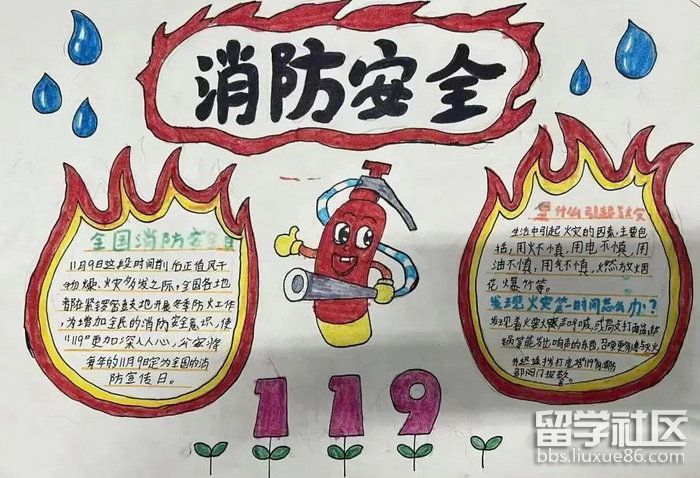 消防安全
全国消防安全日
11月9日这段时间前后正值风干
物燥、火灾多发之际,全国各地
都在紧锣密鼓地开展冬季防火工作,
为增加全民的消防安全意识,使
"119"更加深入人心,公安将
每年的11月9日定为全国的消
防宣传日。
119
是什么引起火灾
生活中引起火灾的因素,主要包
括,用火不慎,用电不慎,用
油不慎,用气不慎,燃放烟
花,爆竹等。
发现火灾第一时间怎么办?
发现着火要大声呼喊,或
能发出响声的东西,
拨打119
留学社区
bbs.liuxue86.com